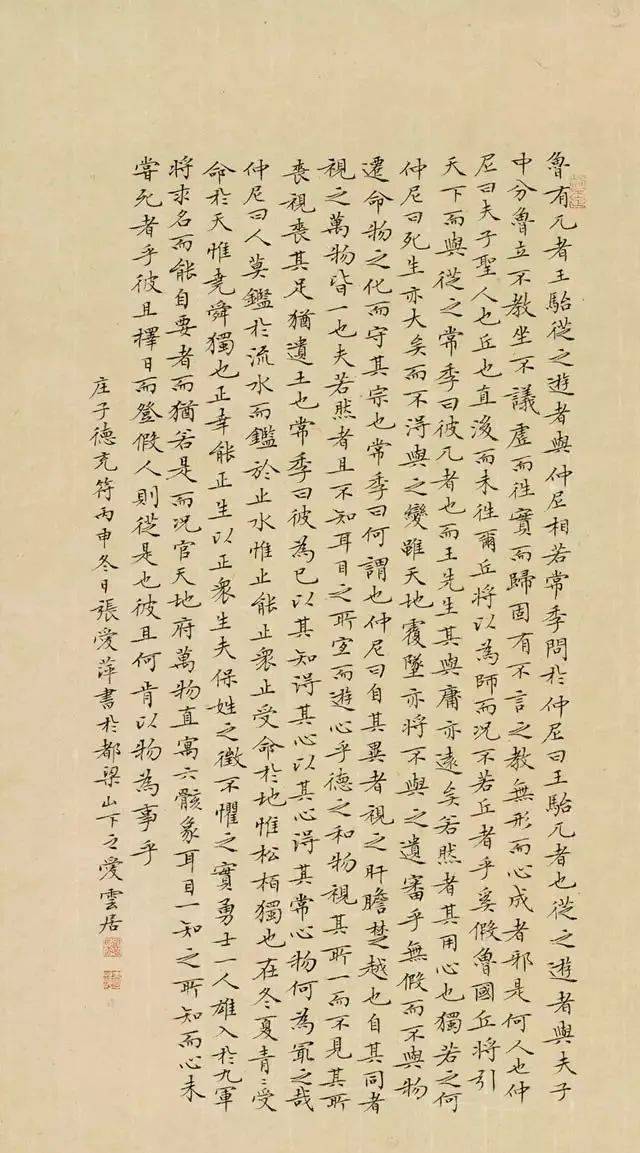 魯有兀者王駘從之遊者與仲尼相若常季問於仲尼曰王駘兀者也從之遊者與夫子
中分魯立不教坐不議虛而往實而歸固有不言之教無形而心成者邪是何人也仲
尼曰夫子聖人也丘也直後而未往爾丘將以為師而況不若丘者乎奚假魯國丘將引
天下而與從之常季曰彼兀者也而王先生其與庸亦遠矣若然者其用心也獨若之何
仲尼曰死生亦大矣而不得與之變雖天地覆墜亦將不與之遺審乎無假而不與物
遷命物之化而守其宗也常季曰何謂也仲尼曰自其異者視之肝膽楚越也自其同者
視之萬物皆一也夫若然者且不知耳目之所宜而遊心乎德之和物視其所一而不見其所
喪視喪其足猶遺土也常季曰彼為己以其知得其心以其心得其常心物何為冣之哉
仲尼曰人莫鑑於流水而鑑於止水惟止能止衆止受命於地惟松栢獨也在冬夏青〻受
命於天惟堯舜獨也正幸能正生以正衆生夫保始之徵不懼之實勇士一人雄入於九軍
將求名而能自要者而猶若是而況官天地府萬物直寓六骸象耳目一知之所知而心未
嘗死者乎彼且擇日而登假人則從是也彼且何肯以物為事乎
庄子德充符丙申冬日張愛萍書於都梁山下之愛雲居